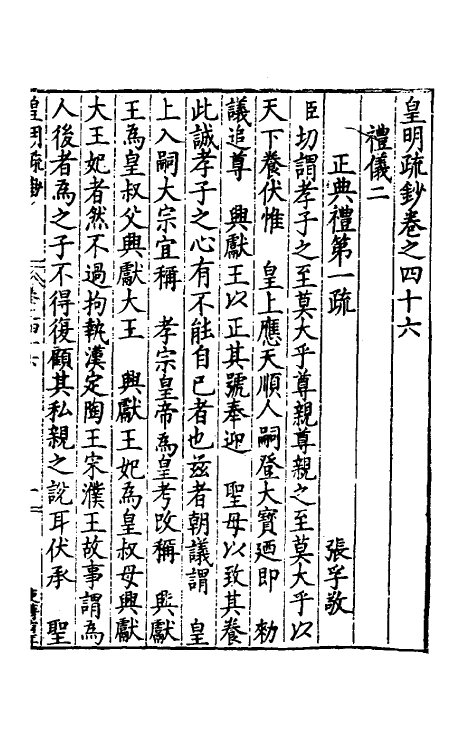 皇明疏鈔卷之四十六
禮儀二
正典禮第一疏 張孚敬
臣切謂孝子之至莫大乎尊親尊親之至莫大乎以
天下養伏惟 皇上應天順人嗣登大寶廼即 勑
議追尊 興獻王以正其號奉迎 聖母以致其養
此誠孝子之心有不能自已者也茲者朝議謂 皇
上入嗣大宗宜稱 孝宗皇帝為皇考改稱 興獻
王為皇叔父興獻大王 興獻王妃為皇叔母興獻
大王妃者然不過拘執漢定陶王宋濮王故事謂為
人後者為之子不得復顧其私親之說耳伏承 聖
皇明疏鈔